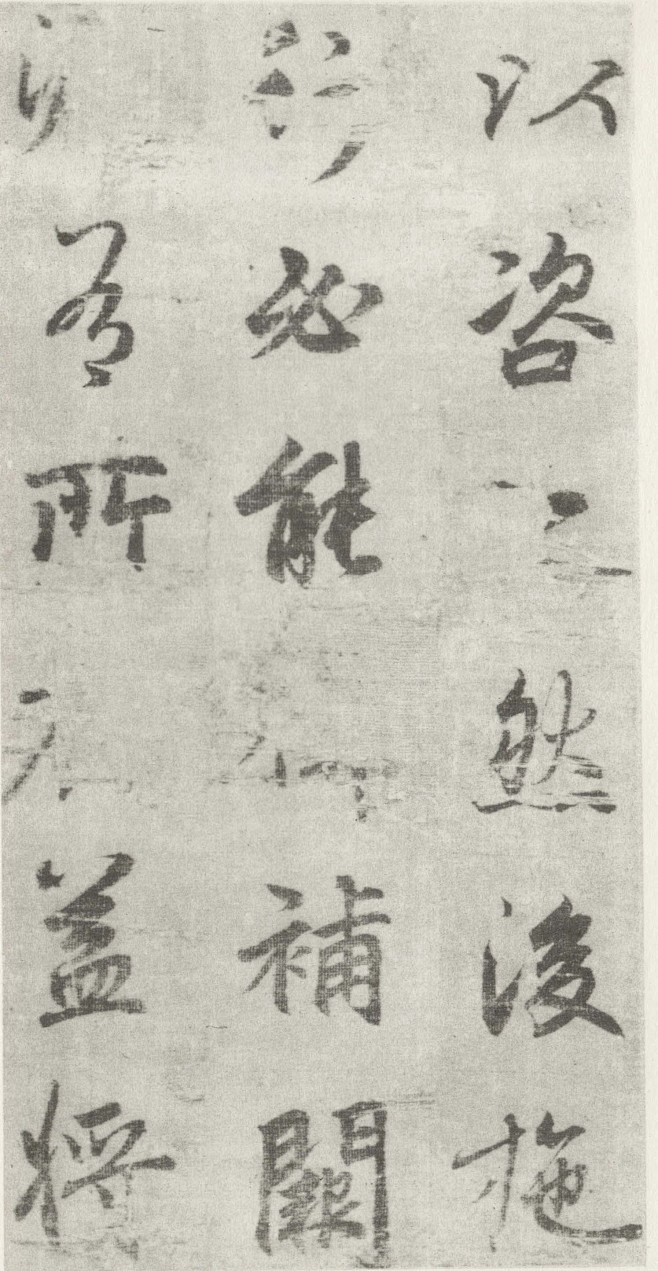 以咨之然後施
行必能補闕
有所益將